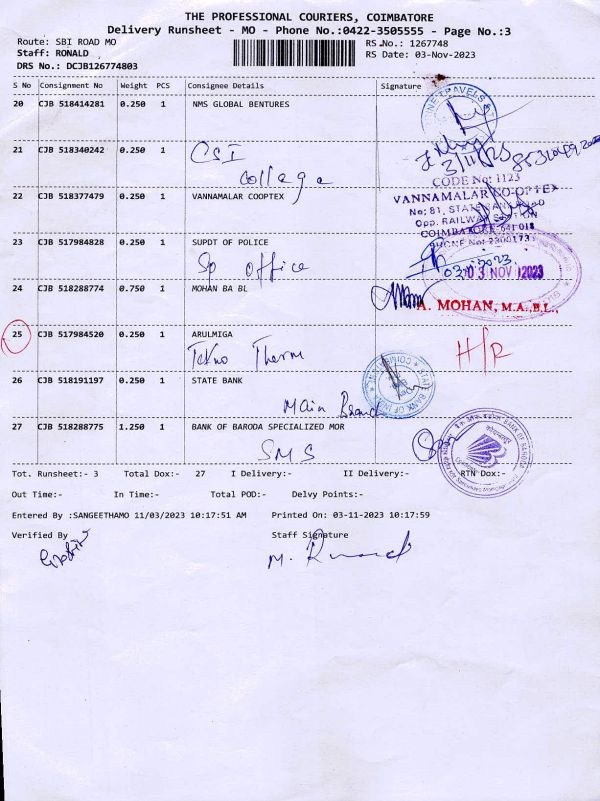 THE PROFESSIONAL COURIERS, COIMBATORE
Delivery Runsheet - MO - Phone No.:0422-3505555 - Page No.:3
Route: SBI ROAD MO
RS No.: 1267748
Staff: RONALD
RS Date: 03-Nov-2023
DRS No.: DCJB126774803
S No Consignment No Weight PCS Consignee Details Signature
20 CJB 518414281 0.250 1 NMS GLOBAL BENTURES
21 CJB 518340242 0.250 1 CSI
3/11/23
collage
CODE No: 1123
22 CJB 518377479 0.250 1 VANNAMALAR COOPTEX
VANNAMALAR CO-OPTEX
No; 81, STATE
Opp. RAILWAY STATION
COIMBATORE-641 018
PHONE No: 2300173
23 CJB 517984828 0.250 1 SUPDT OF POLICE
Sp office
03 NOV 2023
24 CJB 518288774 0.750 1 MOHAN BA BL
A. MOHAN, M.A.,B.L.,
25 CJB 517984520 0.250 1 ARULMIGA
Tekno Therm
H/R
26 CJB 518191197 0.250 1 STATE BANK
STATE BANK OF INDIA
Main Branch
27 CJB 518288775 1.250 1 BANK OF BARODA SPECIALIZED MOR
SMS
BANK OF BARODA
Tot. Runsheet:- 3 Total Dox:- 27 I Delivery:- II Delivery:- RTN Dox:-
Out Time:- In Time:- Total POD:- Delvy Points:-
Entered By :SANGEETHAMO 11/03/2023 10:17:51 AM Printed On: 03-11-2023 10:17:59
Verified By Staff Signature